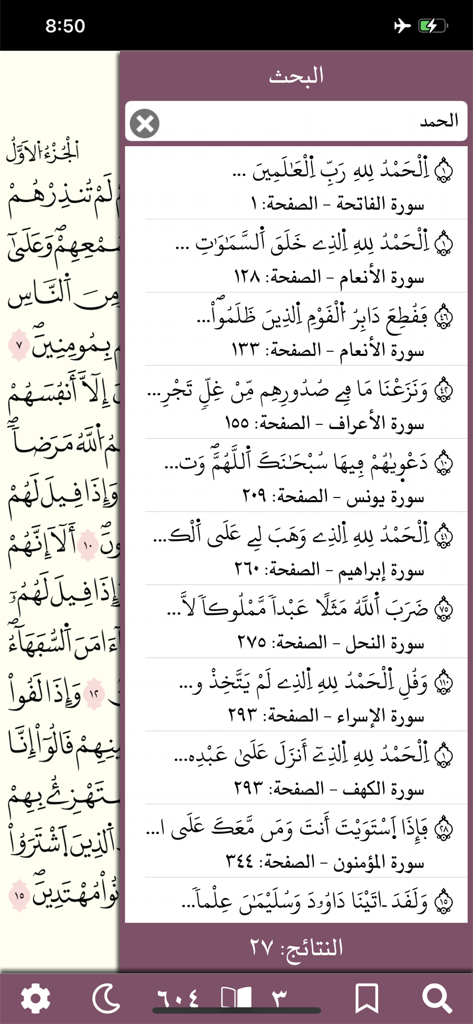 8:50
البحث
الحمد
اِ۬لْحَمْدُ لِلهِ رَبِّ اِ۬لْعَٰلَمِينَ ... ١
سورة الفاتحة - الصفحة: ١
اِ۬لْحَمْدُ لِلهِ اِ۬لذِے خَلَقَ اَ۬لسَّمَٰوَٰتِ ... ١
سورة الأنعام - الصفحة: ١٢٨
فَقُطِعَ دَابِرُ اُ۬لْقَوْمِ اِ۬لذِينَ ظَلَمُواْۖ... ٤٦
سورة الأنعام - الصفحة: ١٣٣
وَنَزَعْنَا مَا فِے صُدُورِهِم مِّنْ غِلّٖ تَجْرِ... ٤٢
سورة الأعراف - الصفحة: ١٥٥
دَعْوٜيٰهُمْ فِيهَا سُبْحَٰنَكَ اَ۬للَّهُمَّۖ وَت... ١٠
سورة يونس - الصفحة: ٢٠٩
اِ۬لْحَمْدُ لِلهِ اِ۬لذِے وَهَبَ لِے عَلَى اَ۬لْك... ٤١
سورة إبراهيم - الصفحة: ٢٦٠
ضَرَبَ اَ۬للَّهُ مَثَلًا عَبْداٗ مَّمْلُوكاٗ لَّا... ٧٥
سورة النحل - الصفحة: ٢٧٥
وَقُلِ اِ۬لْحَمْدُ لِلهِ اِ۬لذِے لَمْ يَتَّخِذْ و... ١١٠
سورة الإسراء - الصفحة: ٢٩٣
اِ۬لْحَمْدُ لِلهِ اِ۬لذِےٓ أَنزَلَ عَلَىٰ عَبْدِه... ١
سورة الكهف - الصفحة: ٢٩٣
فَإِذَا اَ۪سْتَوَيْتَ أَنتَ وَمَن مَّعَكَ عَلَى ا... ٢٨
سورة المؤمنون - الصفحة: ٣٤٤
وَلَقَدَ اٰتَيْنَا دَاوُۥدَ وَسُلَيْمَٰنَ عِلْماٗ... ١٥
النتائج: ٢٧
اَ۬لْجُزْءُ اُ۬لْأَوَّلُ
لَمْ تُنذِرْهُمْ
سَمْعِهِمْۖ وَعَلَىٰٓ
مِنَ اَ۬لنَّاسِ
بِمُومِنِينَۖ ٧
إِلَّآ أَنفُسَهُمْ
اُ۬للَّهُ مَرَضاٗۖ
وَإِذَا قِيلَ لَهُمْ
١٠ أَلَآ إِنَّهُمْ
وَإِذَا قِيلَ لَهُمُۥٓ
ءَامَنَ اَ۬لسُّفَهَآءُۖ
١٢ وَإِذَا لَقُواْ
قَالُوٓاْ إِنَّا
بِهِمْ
اَ۬لذِينَ اَ۪شْتَرَوُاْ
مُهْتَدِينَۖ ١٥
٣ ٦٠٤